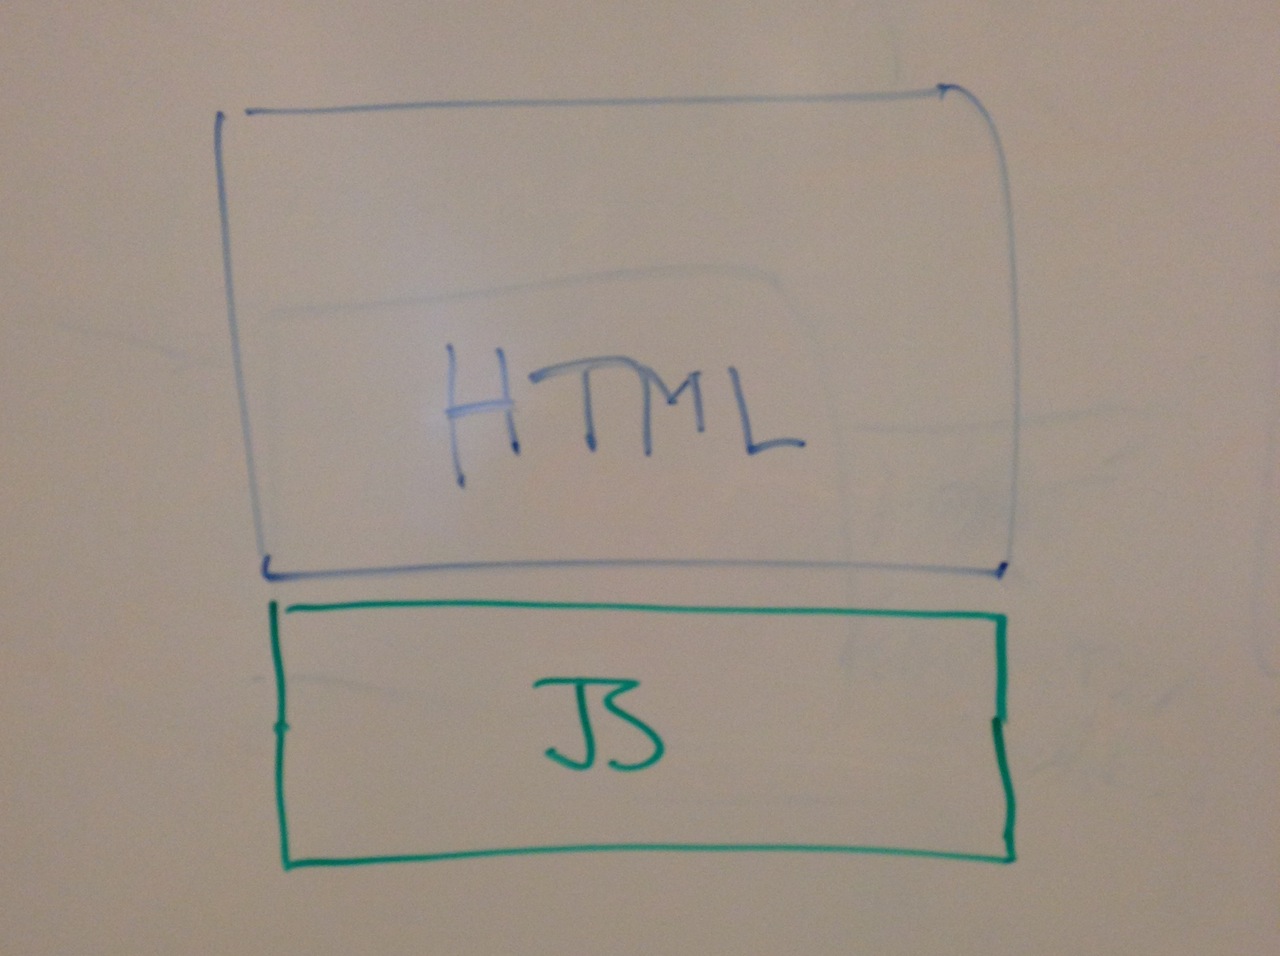 HTML
JS